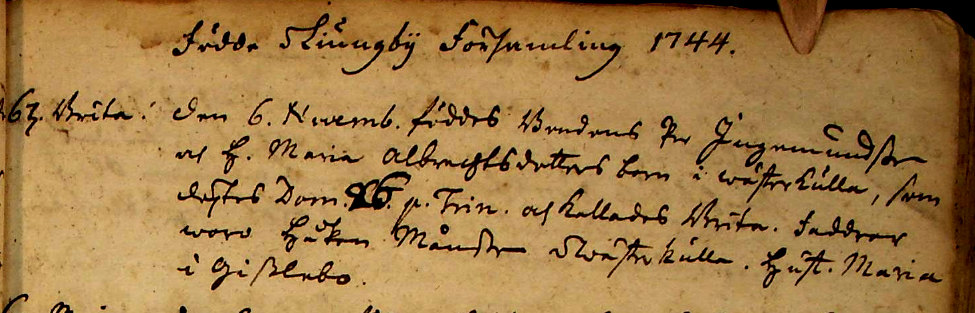 Födde i Liungby Församling 1744.
63. Brita. den 6. Novemb. föddes Bondens Per Ingemundss.
och H. Maria Albrechtsdotters barn i wästerkulla, som
döptes Dom. 26. p. Trin. och kallades Brita. Faddrar
woro Håken Månss. i Wästerkulla. Hust. Maria
i Gislebo.